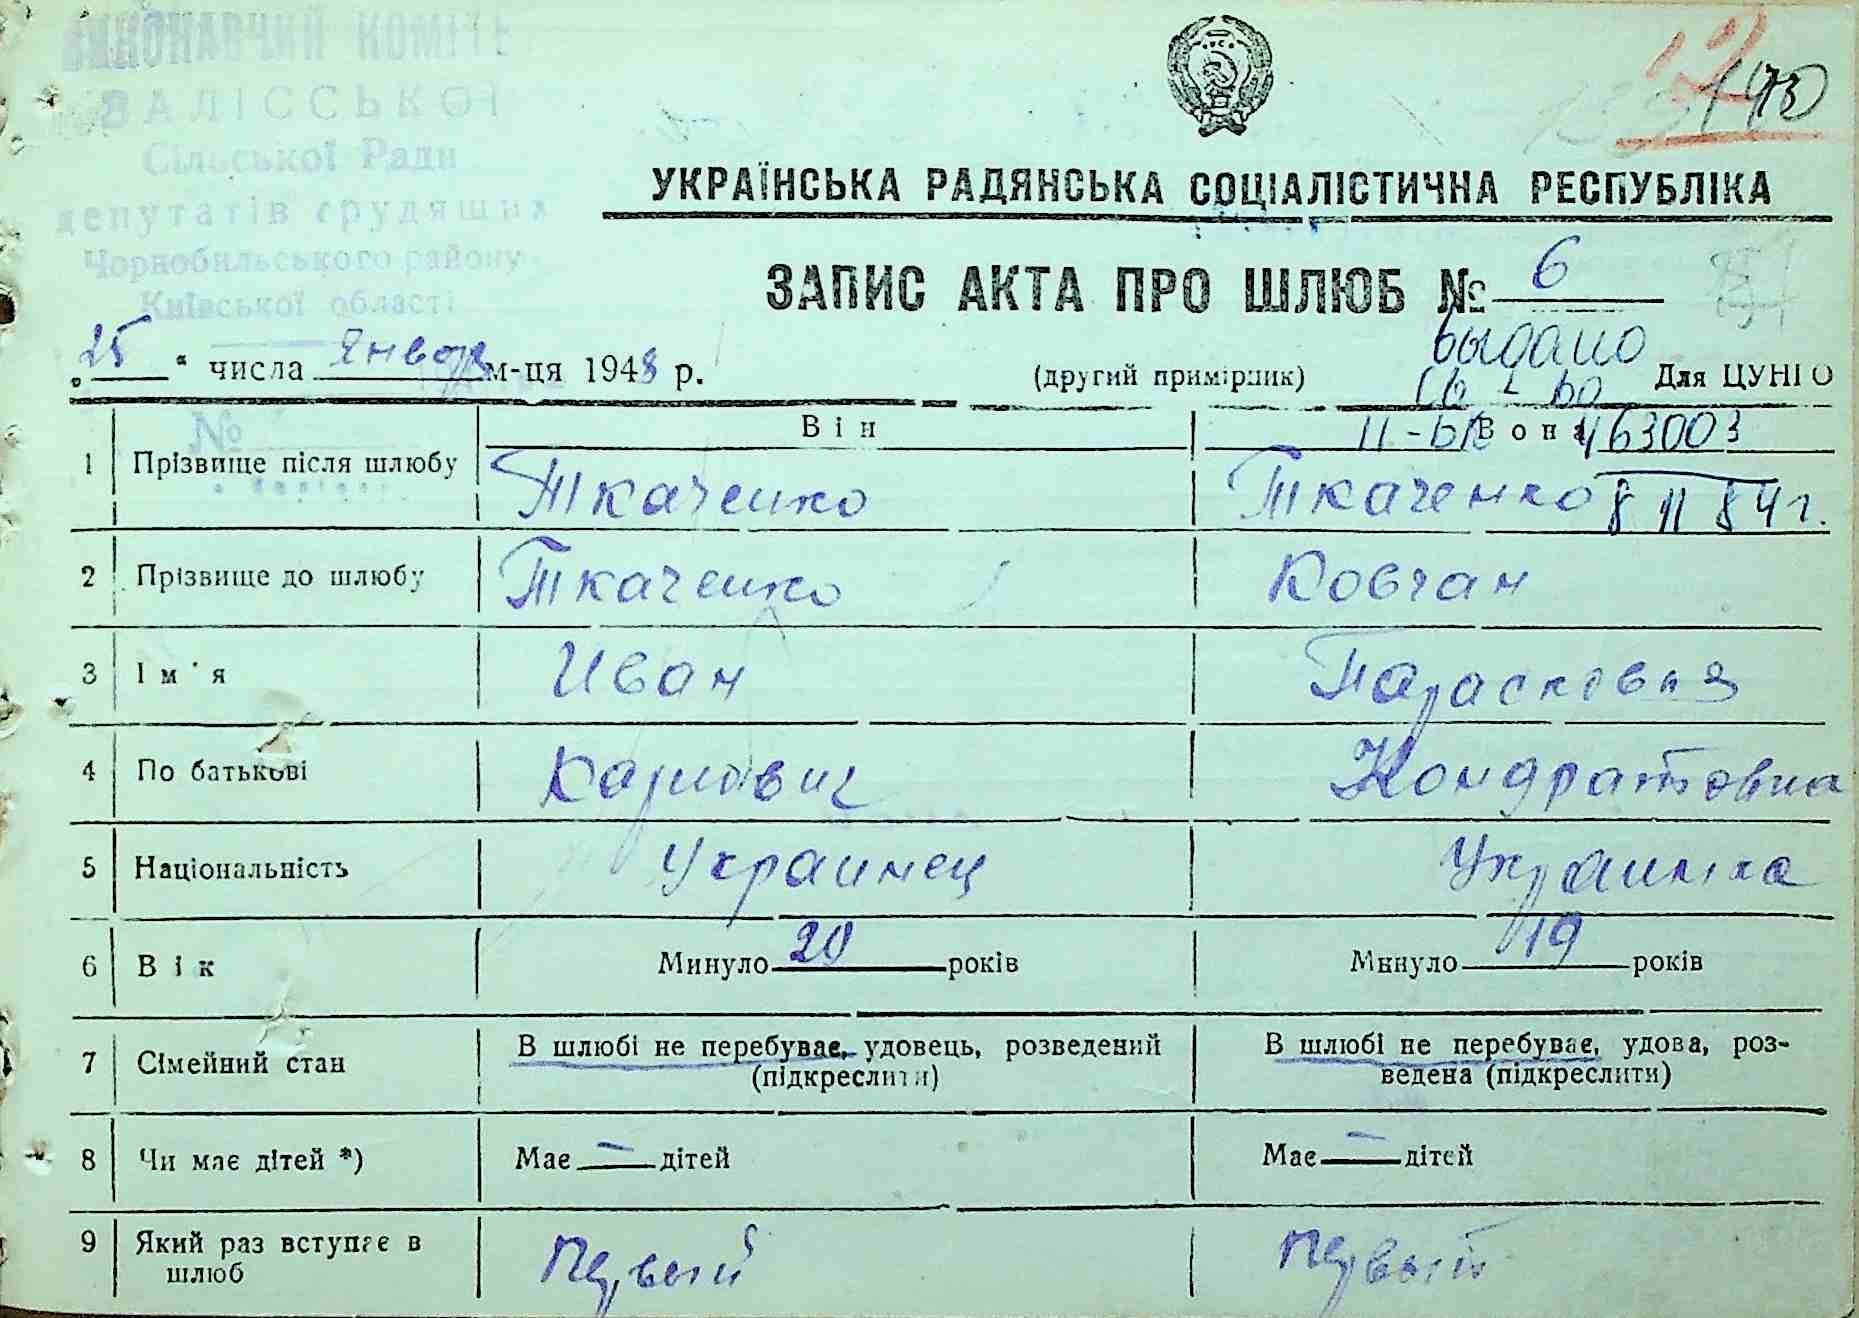 ВИКОНАВЧИЙ КОМІТЕ
ЗАЛІССЬКОЇ
Сільської Ради
депутатів трудящих
Чорнобильського району
Київської області
№
140
УКРАЇНСЬКА РАДЯНСЬКА СОЦІАЛІСТИЧНА РЕСПУБЛІКА
ЗАПИС АКТА ПРО ШЛЮБ № 6
„25“ числа Января м-ця 1948 р. (другий примірник) Для ЦУНГО
выдано
св-во
II-БК 463003
8 11 84 г.
Він Вона
1 Прізвище після шлюбу Ткаченко Ткаченко
2 Прізвище до шлюбу Ткаченко Ковчан
3 Ім'я Иван Парасковья
4 По батькові Карпович Кондратовна
5 Національність Украинец Украинка
6 Вік Минуло 20 років Минуло 19 років
7 Сімейний стан В шлюбі не перебуває, удовець, розведений (підкреслити) В шлюбі не перебуває, удова, роз-
ведена (підкреслити)
8 Чи має дітей *) Має — дітей Має — дітей
9 Який раз вступає в шлюб Первый Первый